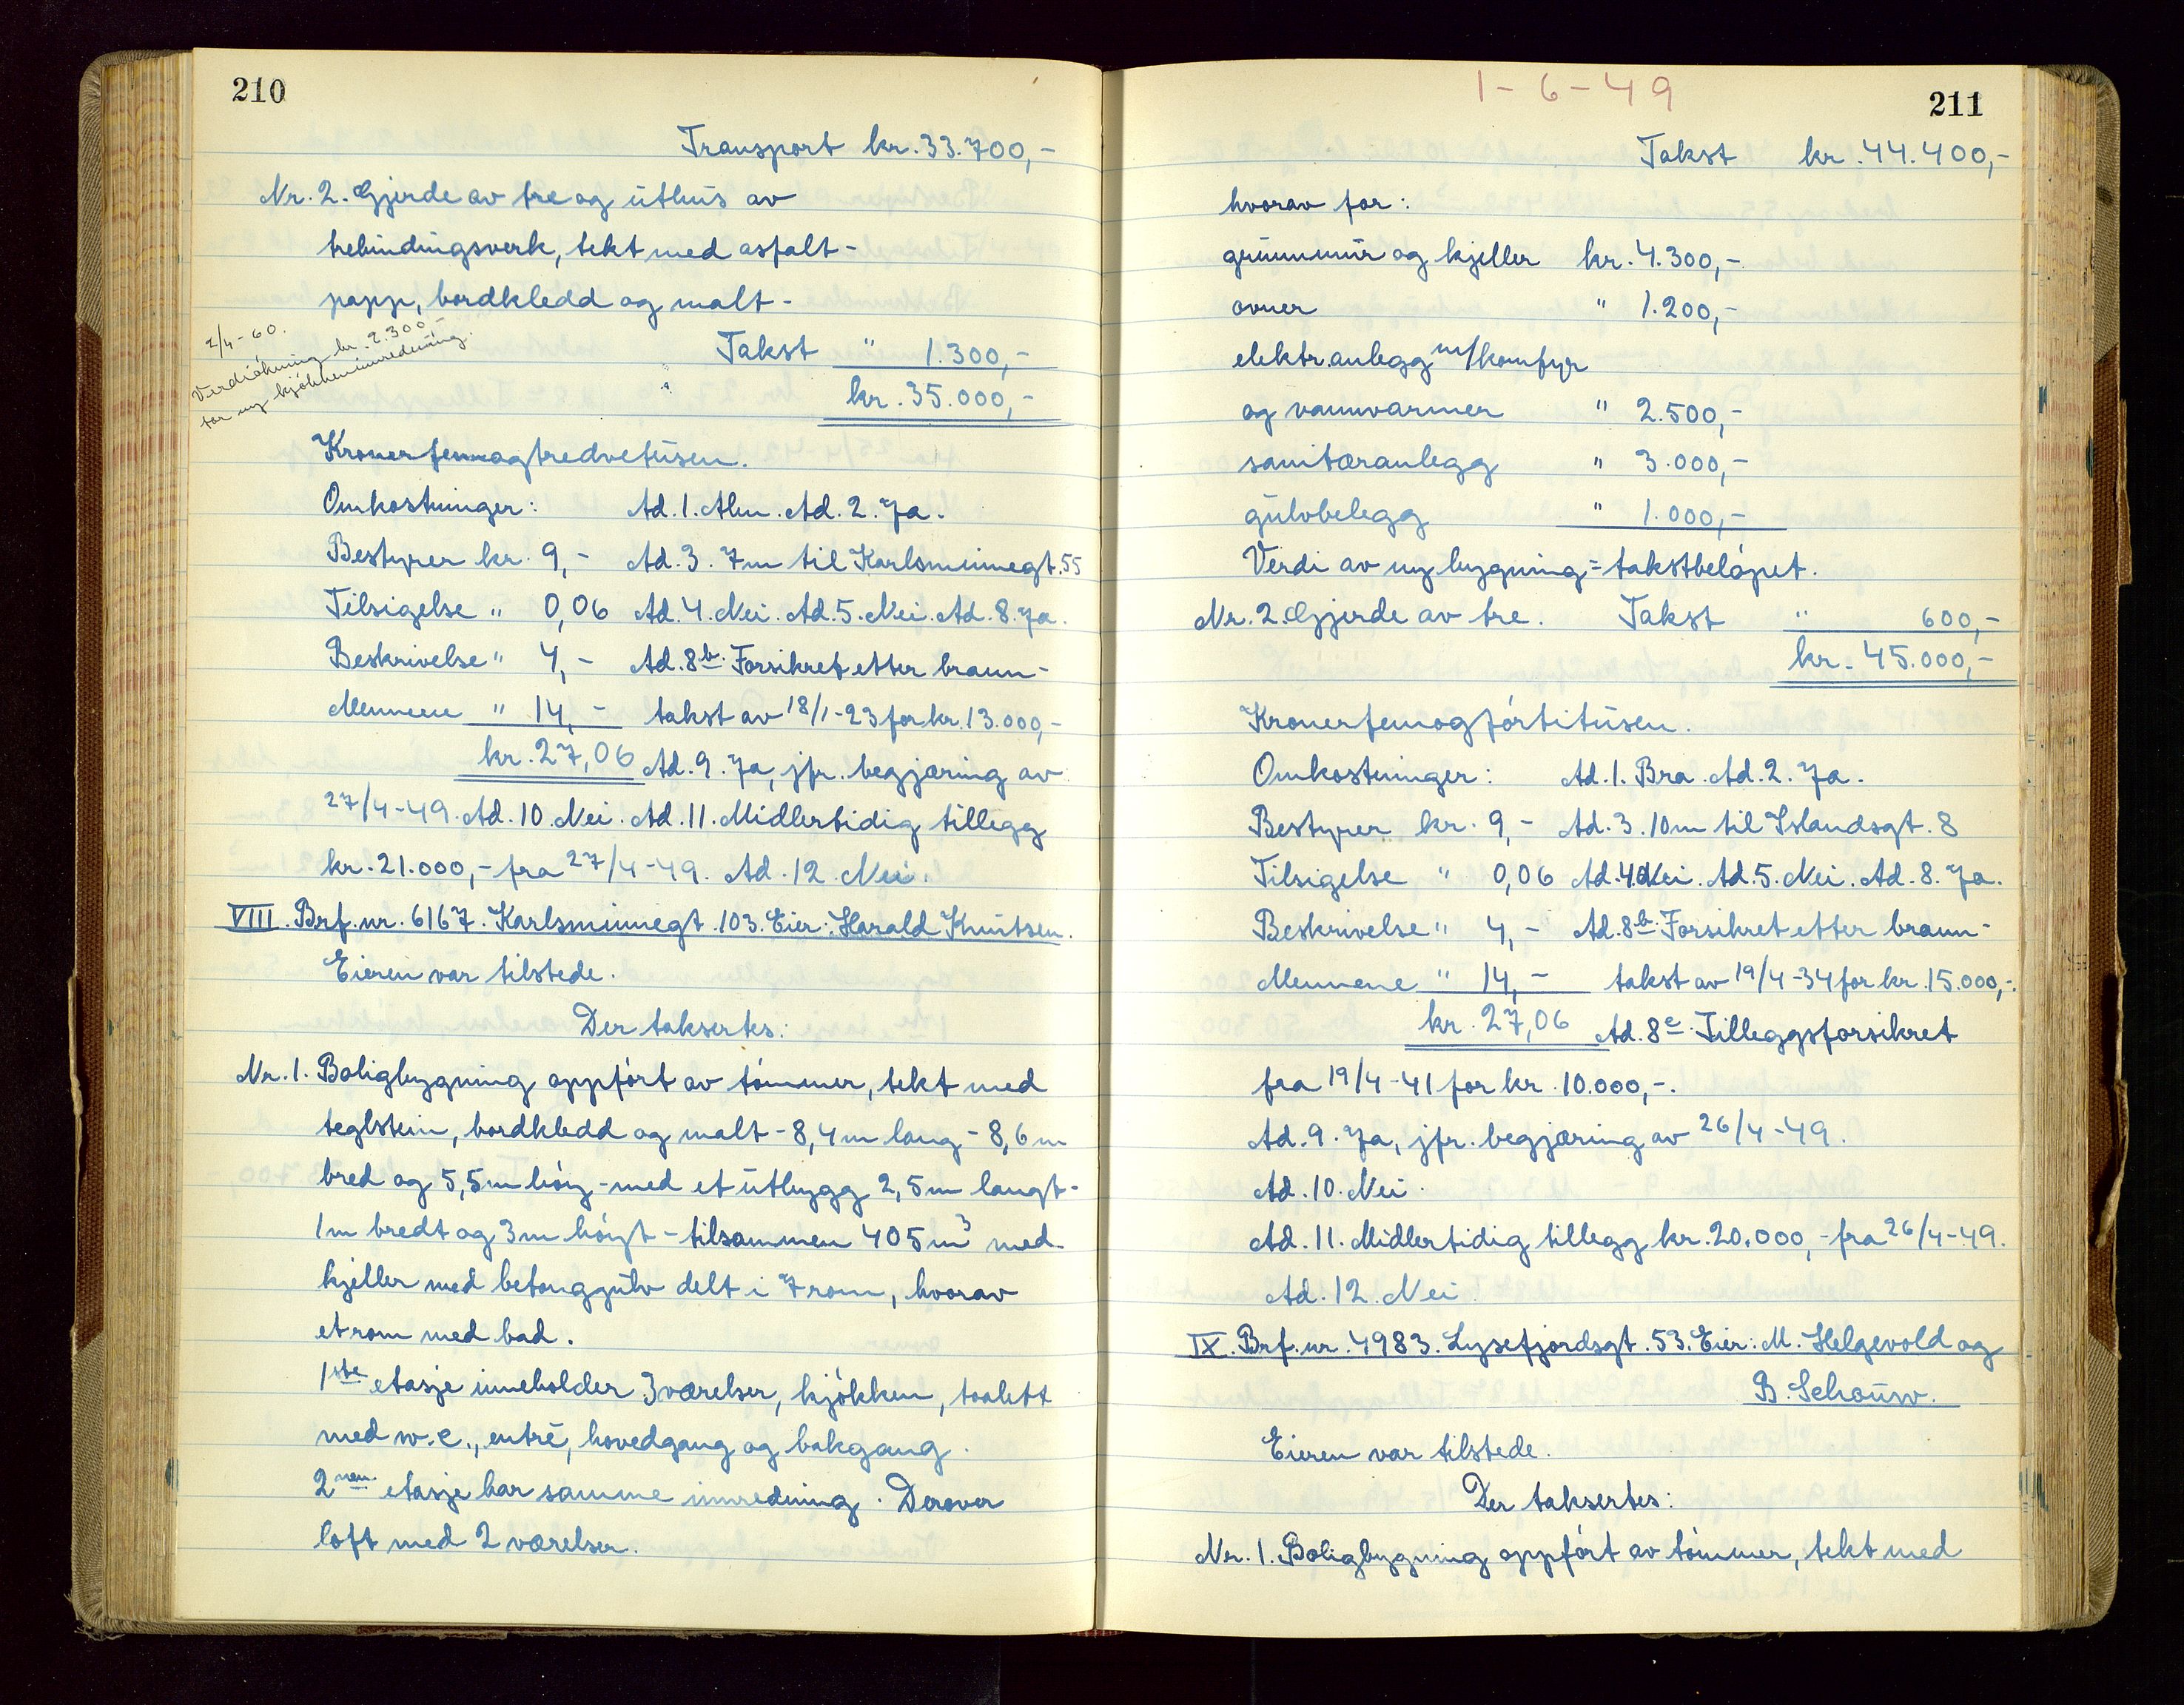 210
Transport kr. 33.700,-
Nr. 2. Gjerde av tre og uthus av
trebindingsverk, tekt med asfalt-
papp, bordkledd og malt -
2/4-60.
Verdiökning kr. 2.300,-
for ny kjökkeninnredning.
Takst " 1.300,-
kr. 35.000,-
Kroner femogtredvetusen.
Omkostninger: Ad. 1. Alm. Ad. 2. Ja.
Bestyrer kr. 9,- Ad. 3. 7m til Karlsminnegt. 55
Tilsigelse " 0,06 Ad. 4. Nei. Ad. 5. Nei. Ad. 8. Ja.
Beskrivelse " 4,- Ad. 8b. Forsikret etter brann-
Mennene " 14,- takst av 18/1-23 for kr. 13.000,-
kr. 27,06 Ad. 9. Ja, jfr. begjæring av
27/4-49. Ad. 10. Nei. Ad. 11. Midlertidig tillegg
kr. 21.000,- fra 27/4-49. Ad. 12. Nei.
VIII. Brf. nr. 6167. Karlsminnegt. 103. Eier: Harald Knutsen.
Eieren var tilstede.
Der taksertes:
Nr. 1. Boligbygning oppfört av tömmer, tekt med
teglstein, bordkledd og malt - 8,4m lang - 8,6m
bred og 5,5m höy - med et utbygg 2,5m langt-
1m bredt og 3m höyt - tilsammen 405 m³ med
kjeller med betonggulv delt i 7 rom, hvorav
et rom med bad.
1ste etasje inneholder 3 værelser, kjökken, toalett
med w.c., entré, hovedgang og bakgang.
2nen etasje har samme innredning. Derover
loft med 2 værelser.
1-6-49
211
Takst kr. 44.400,-
hvorav for:
grunnmur og kjeller kr. 4.300,-
ovner " 1.200,-
elektr.anlegg m/komfyr
og vannvarmer " 2.500,-
sanitæranlegg " 3.000,-
gulvbelegg " 1.000,-
Verdi av ny bygning = takstbelöpet.
Nr. 2. Gjerde av tre. Takst " 600,-
kr. 45.000,-
Kroner femogförtitusen.
Omkostninger: Ad. 1. Bra. Ad. 2. Ja.
Bestyrer kr. 9,- Ad. 3. 10m til Islandsgt. 8
Tilsigelse " 0,06 Ad. 4. Nei. Ad. 5. Nei. Ad. 8. Ja.
Beskrivelse " 4,- Ad. 8b. Forsikret etter brann-
Mennene " 14,- takst av 19/4-34 for kr. 15.000,-.
kr. 27,06 Ad. 8c. Tilleggsforsikret
fra 19/4-41 for kr. 10.000,-.
Ad. 9. Ja, jfr. begjæring av 26/4-49.
Ad. 10. Nei.
Ad. 11. Midlertidig tillegg kr. 20.000,- fra 26/4-49.
Ad. 12. Nei
IX. Brf. nr. 4983. Lysefjordsgt. 53. Eier: M. Helgevold og
B. Schouw.
Eieren var tilstede.
Der taksertes:
Nr. 1. Boligbygning oppfört av tömmer, tekt med